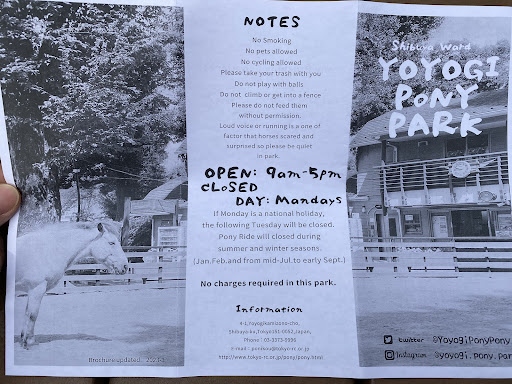 NOTES
No Smoking
No pets allowed
No cycling allowed
Please take your trash with you
Do not play with balls
Do not climb or get into a fence
Please do not feed them
without permission.
Loud voice or running is a one of
factor that horses scared and
surprised so please be quiet
in park.
OPEN: 9am-5pm
CLOSED
DAY: Mandays
If Monday is a national holiday,
the following Tuesday will be closed.
Pony Ride will closed during
summer and winter seasons.
(Jan.Feb.and from mid-Jul.to early Sept.)
No charges required in this park.
Information
4-1,Yoyogikamizono-cho,
Shibuya-ku,Tokyo151-0052,Japan,
Phone : 03-3373-8996
e-mail :
http://www.tokyo-rc.or.jp/pony/pony.html
Brochure updated
Shibuya Ward
YOYOGI
PONY
PARK
twitter @YoyogiPonyPony
Instagram @yoyogi.pony.park